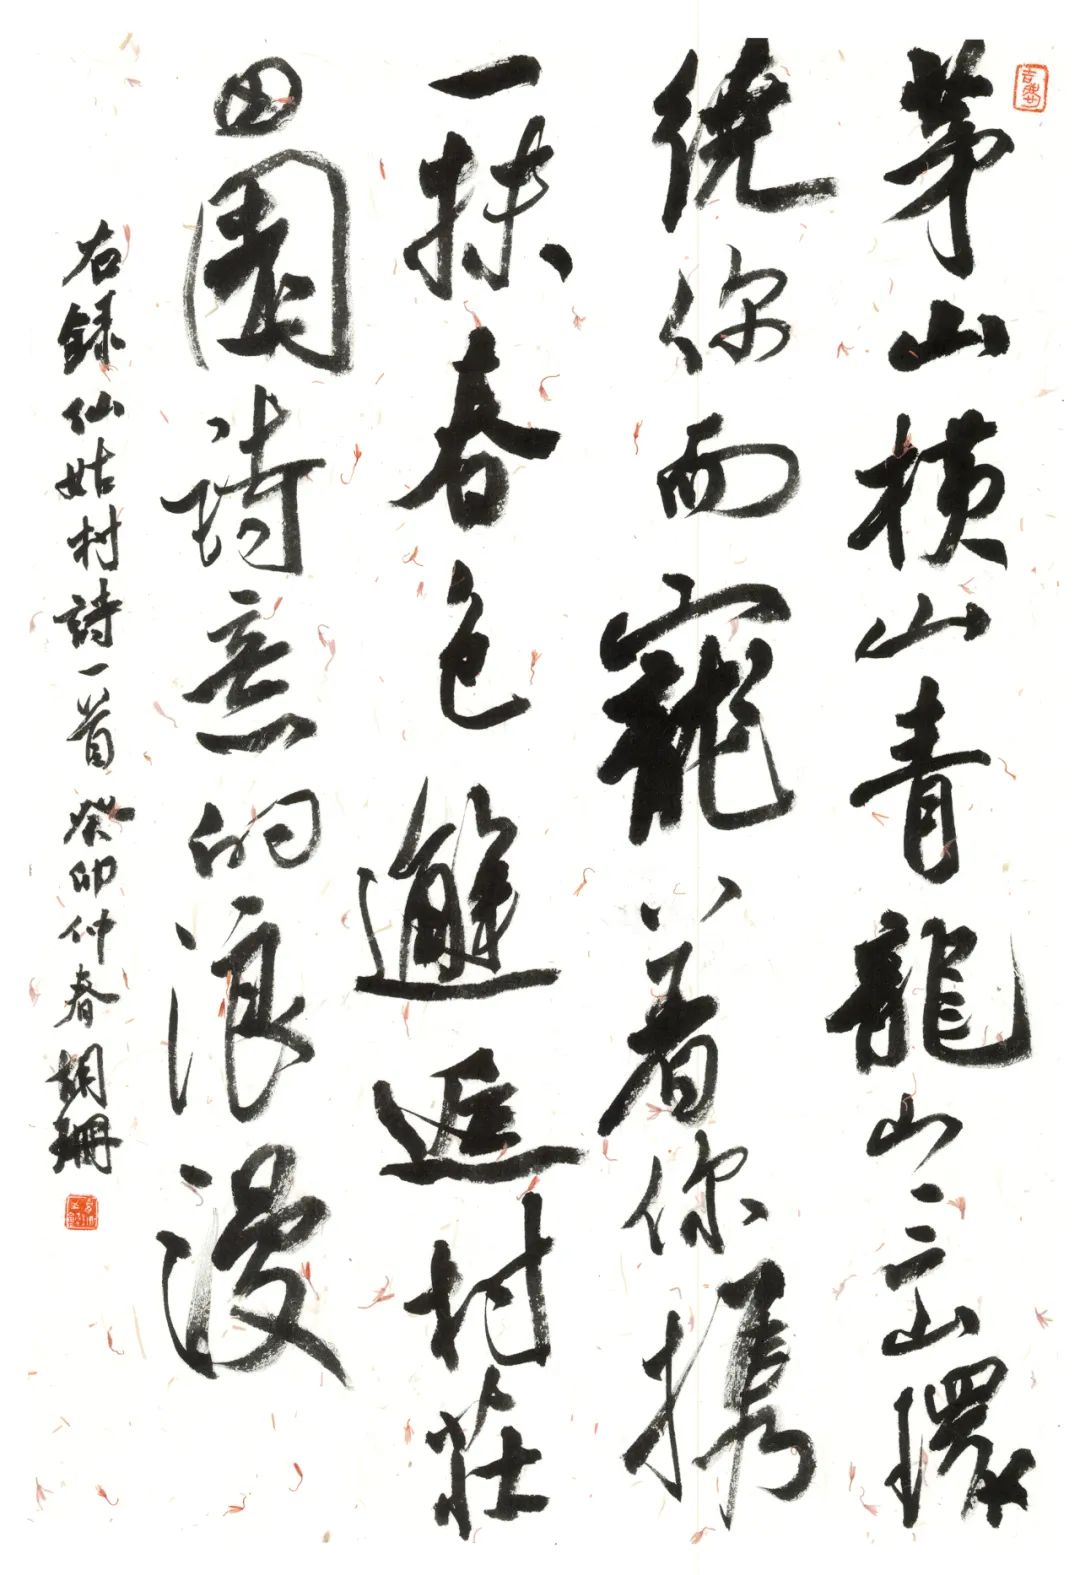 茅山横山青龍山三山環
绕你而寵着你携
一抹春色邂逅村莊
田園詩意的浪漫
右録仙姑村詩一首癸卯仲春胡珊